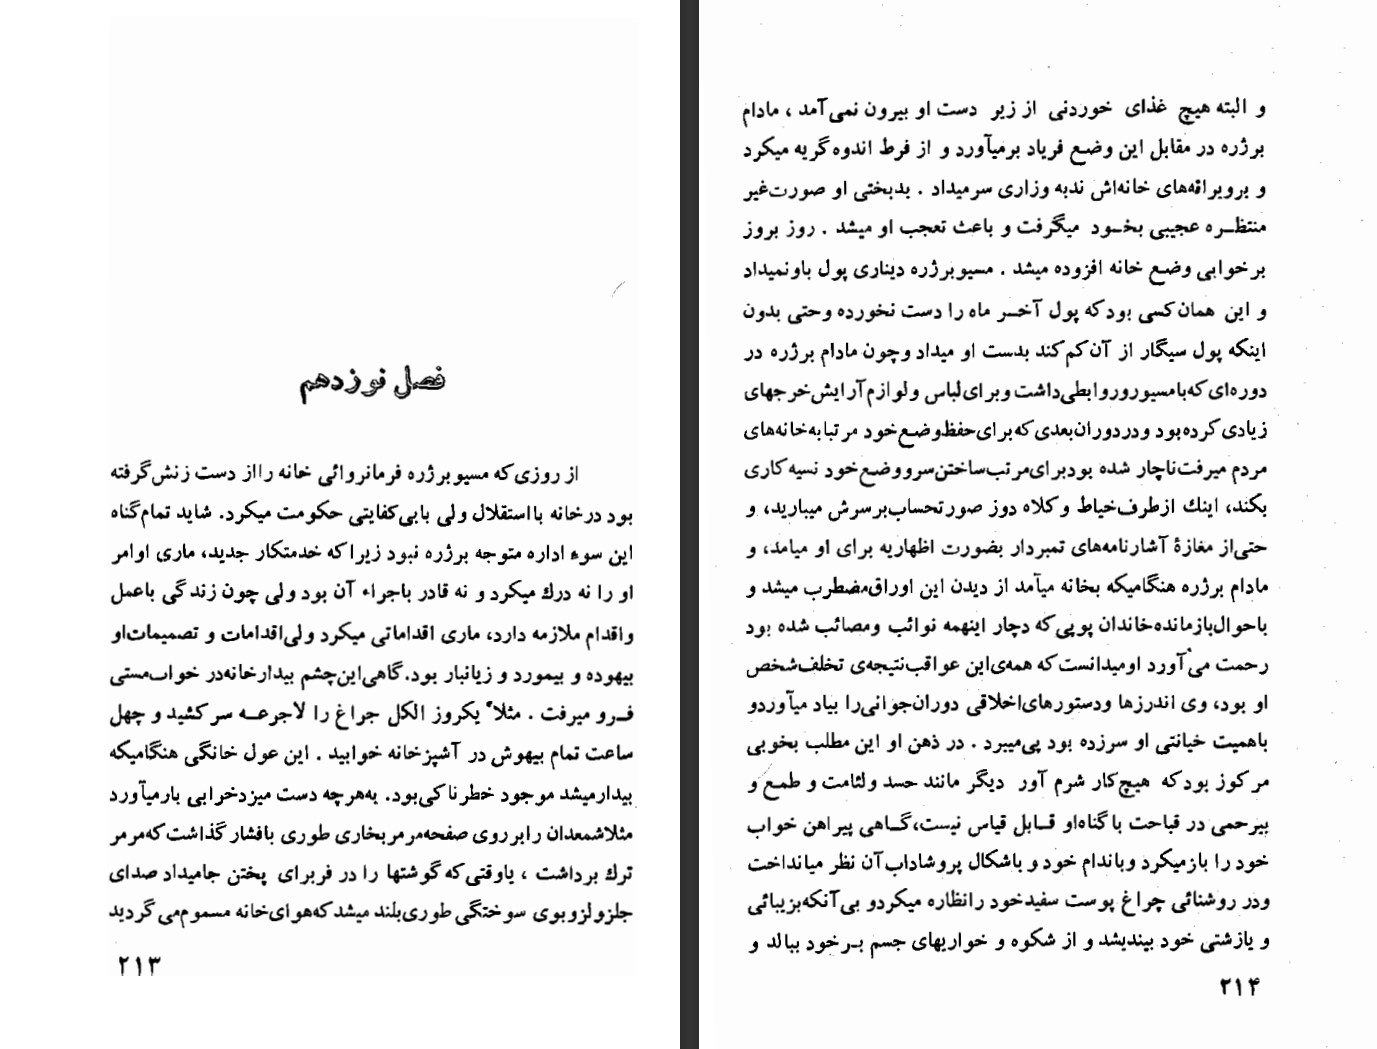 فصل نوزدهم
از روزی که مسیو برژره فرمانروائی خانه را از دست زنش گرفته
بود در خانه با استقلال ولی با بی کفایتی حکومت میکرد. شاید تمام گناه
این سوء اداره متوجه برژره نبود زیرا که خدمتکار جدید، ماری اوامر
او را نه درك میکرد و نه قادر باجراء آن بود ولی چون زندگی باعمل
واقدام ملازمه دارد، ماری اقداماتی میکرد ولی اقدامات و تصمیمات او
بیهوده و بیمورد و زیانبار بود. گاهی این چشم بیدار خانه در خواب مستی
فرو میرفت . مثلا یکروز الکل جراغ را لاجرعه سرکشید و چهل
ساعت تمام بیهوش در آشپزخانه خوابید . این عول خانگی هنگامیکه
بیدار میشد موجود خطرناکی بود. به هرچه دست میزد خرابی بار میآورد
مثلا شمعدان را بر روی صفحه مرمر بخاری طوری با فشار گذاشت که مرمر
ترك برداشت ، یا وقتی که گوشتها را در فر برای پختن جا میداد صدای
جلز و لز و بوی سوختگی طوری بلند میشد که هوای خانه مسموم می گردید
۲۱۳
و البته هیچ غذای خوردنی از زیر دست او بیرون نمی آمد ، مادام
برژره در مقابل این وضع فریاد برمیآورد و از فرط اندوه گریه میکرد
و بر ویرانه های خانه اش ندبه وزاری سر میداد . بدبختی او صورت غیر
منتظره عجیبی بخود میگرفت و باعث تعجب او میشد . روز بروز
بر خوابی وضع خانه افزوده میشد . مسیو برژره دیناری پول باو نمیداد
و این همان کسی بود که پول آخر ماه را دست نخورده وحتی بدون
اینکه پول سیگار از آن کم کند بدست او میداد وچون مادام برژره در
دوره ای که با مسیو رورو ابطی داشت و برای لباس و لوازم آرایش خرجهای
زیادی کرده بود و در دوران بعدی که برای حفظ وضع خود مرتبا به خانه های
مردم میرفت ناچار شده بود برای مرتب ساختن سر و وضع خود نسیه کاری
بکند، اینك از طرف خیاط و کلاه دوز صورتحساب بر سرش میبارید، و
حتی از مغازۀ آشار نامه های تمبردار بصورت اظهاریه برای او میامد، و
مادام برژره هنگامیکه بخانه میآمد از دیدن این اوراق مضطرب میشد و
با حوال بازمانده خاندان پوپی که دچار اینهمه نوائب ومصائب شده بود
رحمت می آورد او میدانست که همه ی این عواقب نتیجه ی تخلف شخص
او بود، وی اندرزها و دستورهای اخلاقی دوران جوانی را بیاد میآورد و
باهمیت خیانتی او سرزده بود پی میبرد . در ذهن او این مطلب بخوبی
مرکوز بود که هیچ کار شرم آور دیگر مانند حسد ولئامت و طمع و
بیرحمی در قباحت با گناه او قابل قیاس نیست، گاهی پیراهن خواب
خود را باز میکرد و باندام خود و باشکال پر و شاداب آن نظر میانداخت
ودر روشنائی چراغ پوست سفید خود را نظاره میکرد و بی آنکه بزیبائی
و یا زشتی خود بیندیشد و از شکوه و خواریهای جسم بر خود ببالد و
۲۱۴